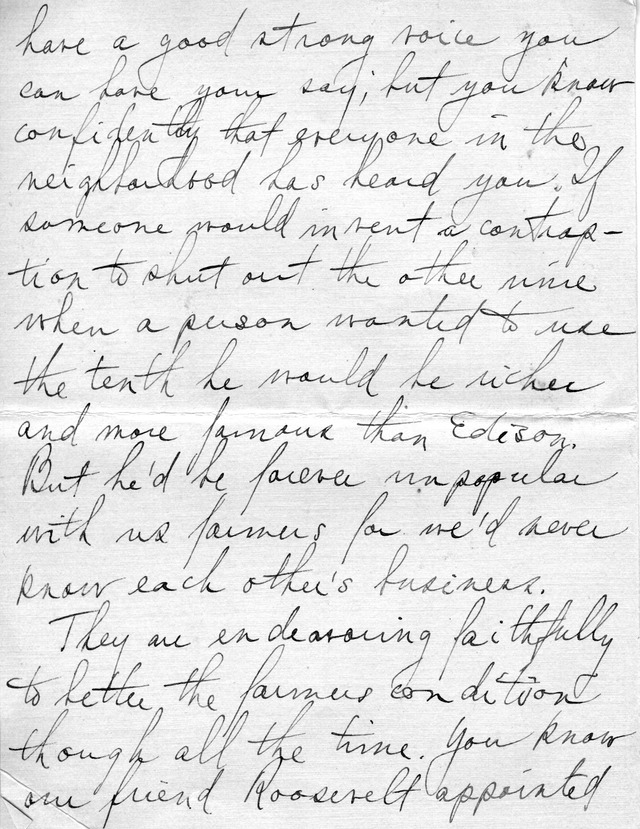 have a good strong voice you
can have your say; but you know
confidently that everyone in the
neighborhood has heard you. If
someone would invent a contrap-
tion to shut out the other nine
when a person wanted to use
the tenth he would be richer
and more famous than Edison.
But he'd be forever unpopular
with us farmers for we'd never
know each other's business.
They are endeavoring faithfully
to better the farmers condition
though all the time. You know
our friend Roosevelt appointed